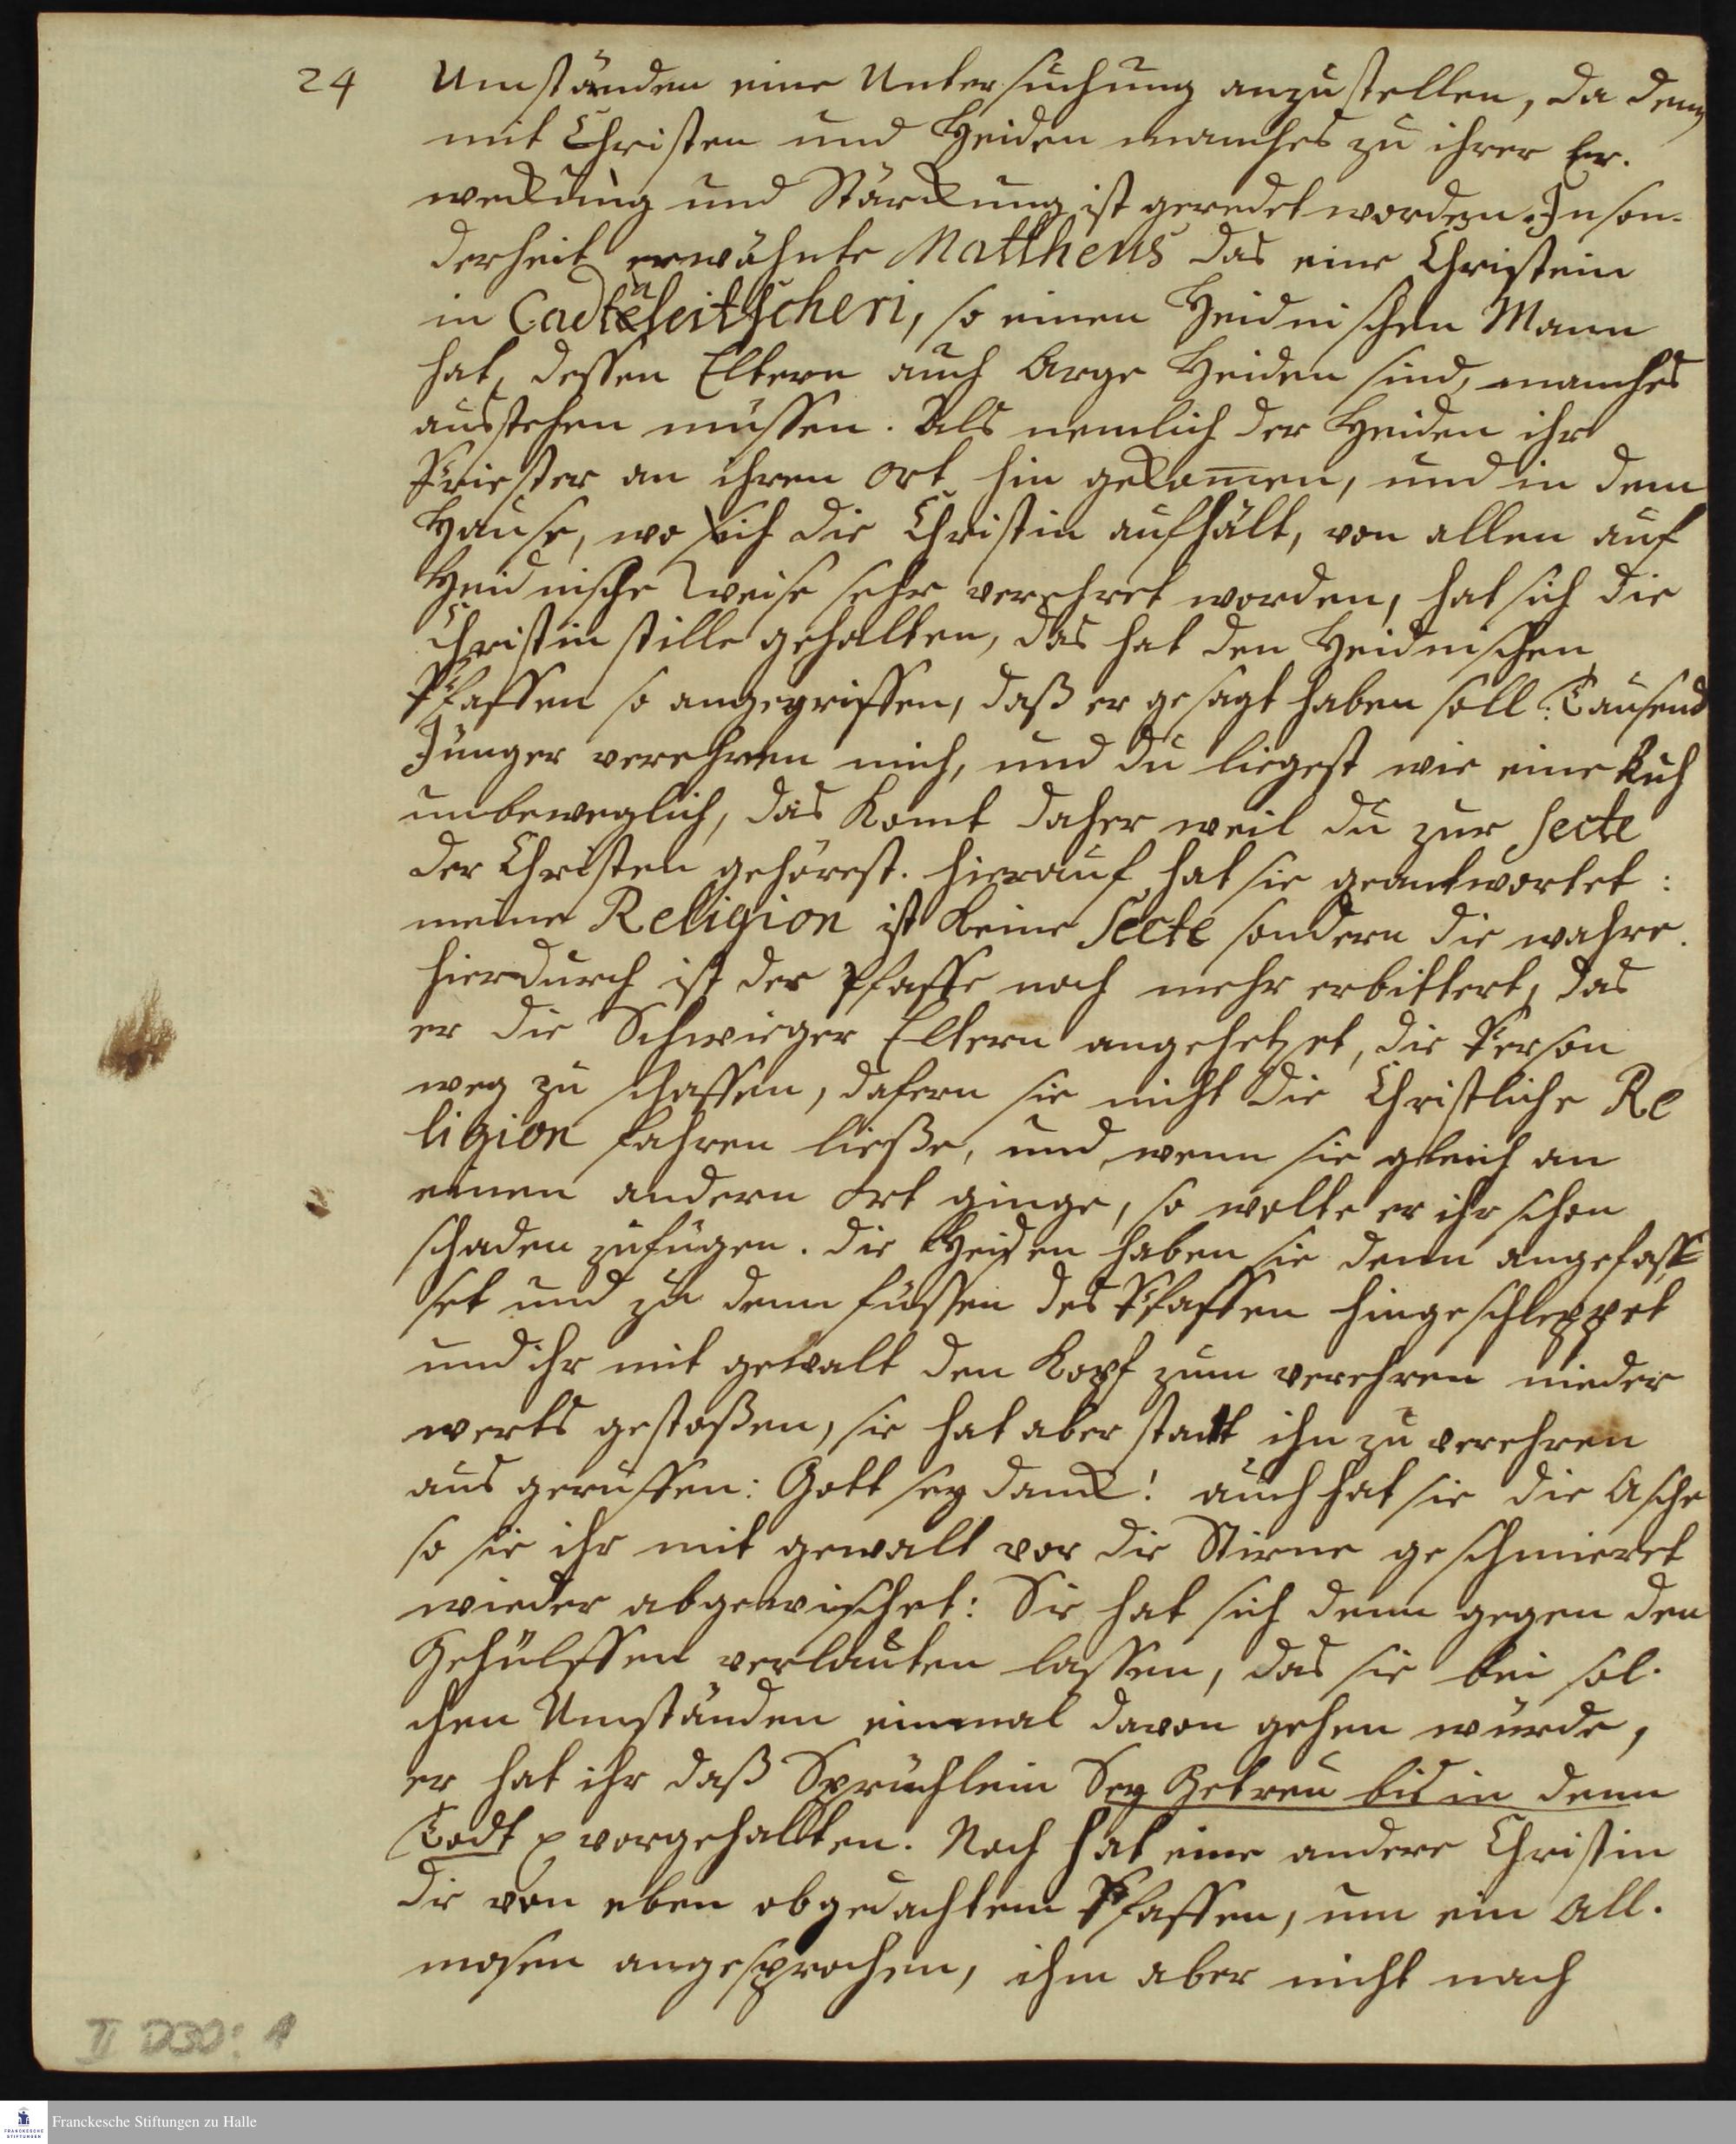 24 Umständen eine Untersuchung anzustellen, da denn
mit Christen und Heiden manches zu ihrer Er.
weckung und Stärckung ist geredet worden. Inson-
derheit erwähnte Mattheus das eine Christein
in Cadteleitscheri, so einen Heidnischen Mann
hat, dessen Eltern auch Arge Heiden sind, manches
ausstehen müssen. Als nemlich der Heiden ihr
Priester an ihren Ort hin gekom̅en, und in dem
Hause, wo sich die Christin aufhält, von allen auf
Heidnische Weise sehr verehret worden, hat sich die
Christin stille gehalten, das hat den Heidnischen
Pfaffen so angegriffen, daß er gesagt haben soll: Tausend
Jünger verehren mich, und du liegest wie eine Kuh
unbeweglich, das komt daher weil du zur Secte
der Christen gehörest. hierauf hat sie geantwortet:
meine Religion ist keine Secte sondern die wahre.
hierdurch ist der Pfaffe noch mehr erbittert, das
er die Schwieger Eltern angehetzet, die Person
weg zu schaffen, dafern sie nicht die Christliche Re
ligion fahren ließe, und wenn sie gleich an
einen andern Ort ginge, so wolte er ihr schon
schaden zufügen. die Heiden haben sie denn angefass
set und zu denn füssen des Pfaffen hingeschleppet
und ihr mit gewalt den Kopf zum verehren nieder
werts gestoßen, sie hat aber statt ihn zu verehren
aus geruffen: Gott sey danck! auch hat sie die Asche
so sie ihr mit gewalt vor die Stirne geschmieret
wieder abgewischet: Sie hat sich denn gegen den
Gehülffen verlauten lassen, das sie bei sol.
chen Umständen einmal davon gehen würde,
er hat ihr daß Sprüchlein Sey Getreu bis in denn
Todt p vorgehallten. Noch hat eine andere Christin
die von eben obgedachtem Pfaffen, um ein All.
mosen angesprochen, ihm aber nicht nach
II D30: 1
Franckesche Stiftungen zu Halle
FRANCKESCHE
STIFTUNGEN